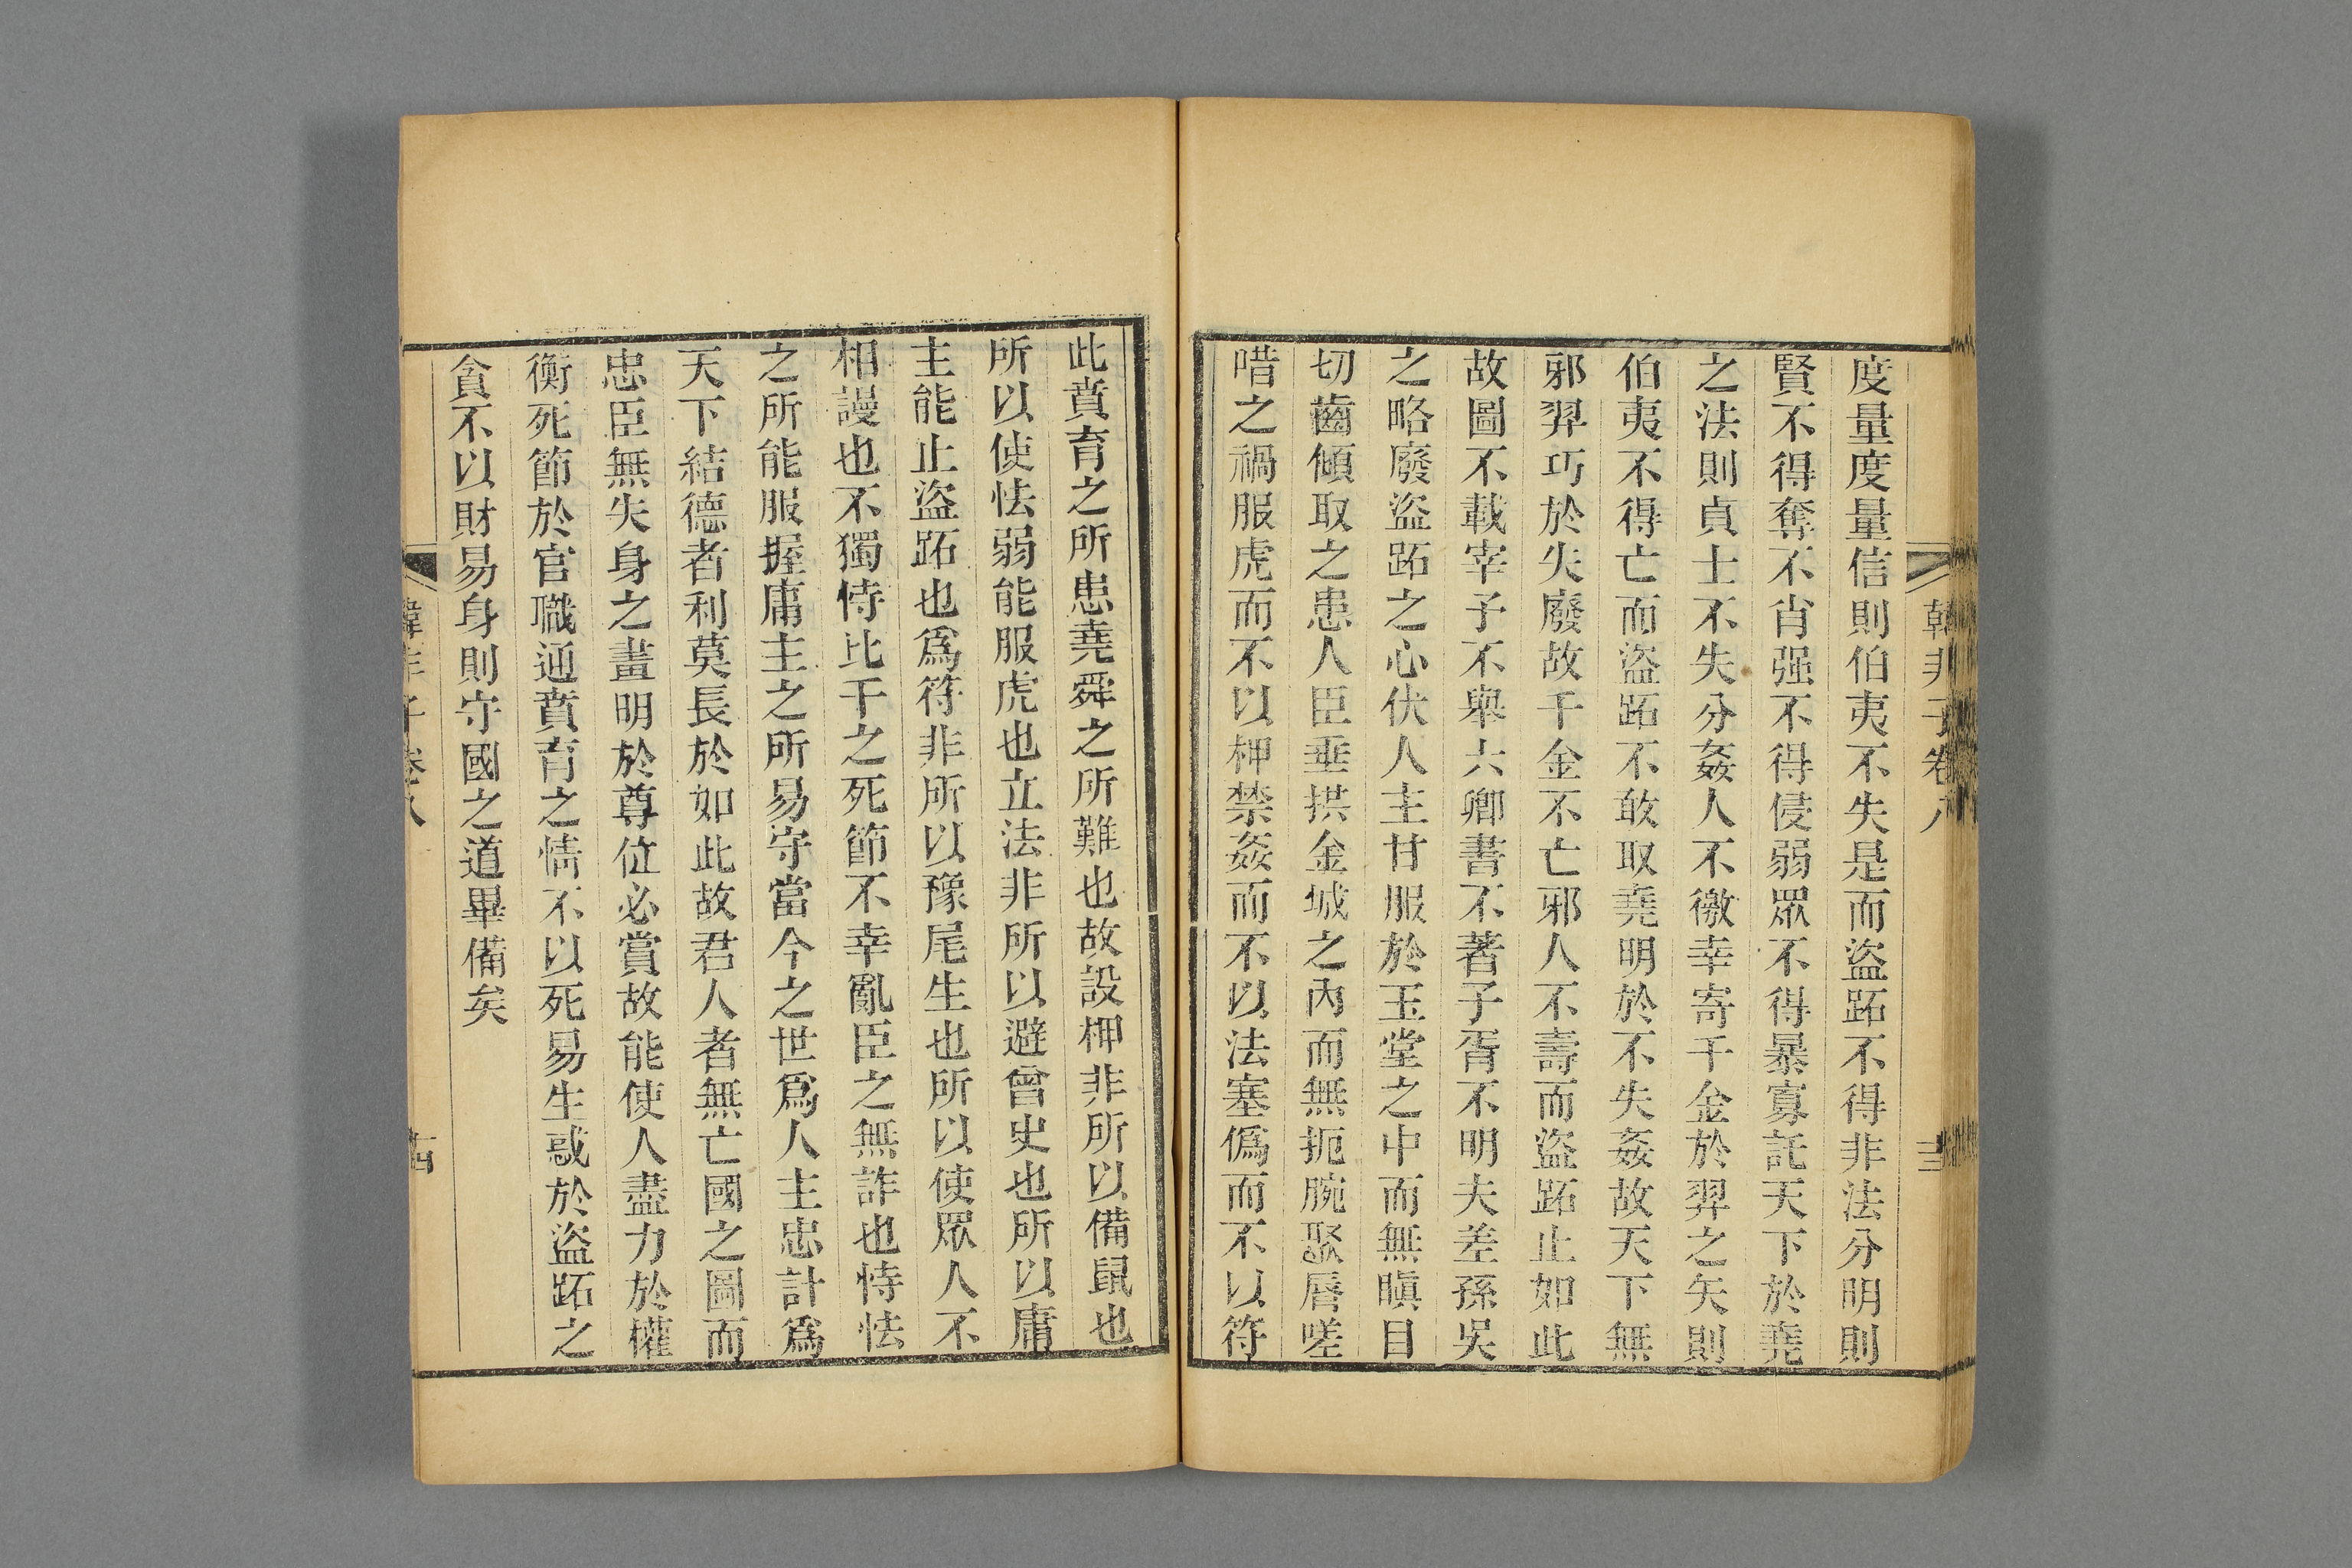 韓非子卷八
度量度量信則伯夷不失是而盜跖不得非法分明則
賢不得奪不肖强不得侵弱眾不得暴寡託天下於堯
之法則貞士不失分姦人不徼幸寄千金於羿之矢則
伯夷不得亡而盜跖不敢取堯明於不失姦故天下無
邪羿巧於失廢故千金不亡邪人不壽而盜跖止如此
故圖不載宰子不舉六卿書不著子胥不明夫差孫吳
之略廢盜跖之心伏人主甘服於玉堂之中而無瞋目
切齒傾取之患人臣垂拱金城之內而無扼腕聚唇嗟
唶之禍服虎而不以柙禁姦而不以法塞僞而不以符
此賁育之所患堯舜之所難也故設柙非所以備鼠也
所以使怯弱能服虎也立法非所以避曾史也所以庸
主能止盜跖也爲符非所以豫尾生也所以使眾人不
相謾也不獨恃比干之死節不幸亂臣之無詐也恃怯
之所能服握庸主之所易守當今之世爲人主忠計爲
天下結德者利莫長於如此故君人者無亡國之圖而
忠臣無失身之畫明於尊位必賞故能使人盡力於權
衡死節於官職通賁育之情不以死易生惑於盜跖之
貪不以財易身則守國之道畢備矣
韓非子卷八
十四